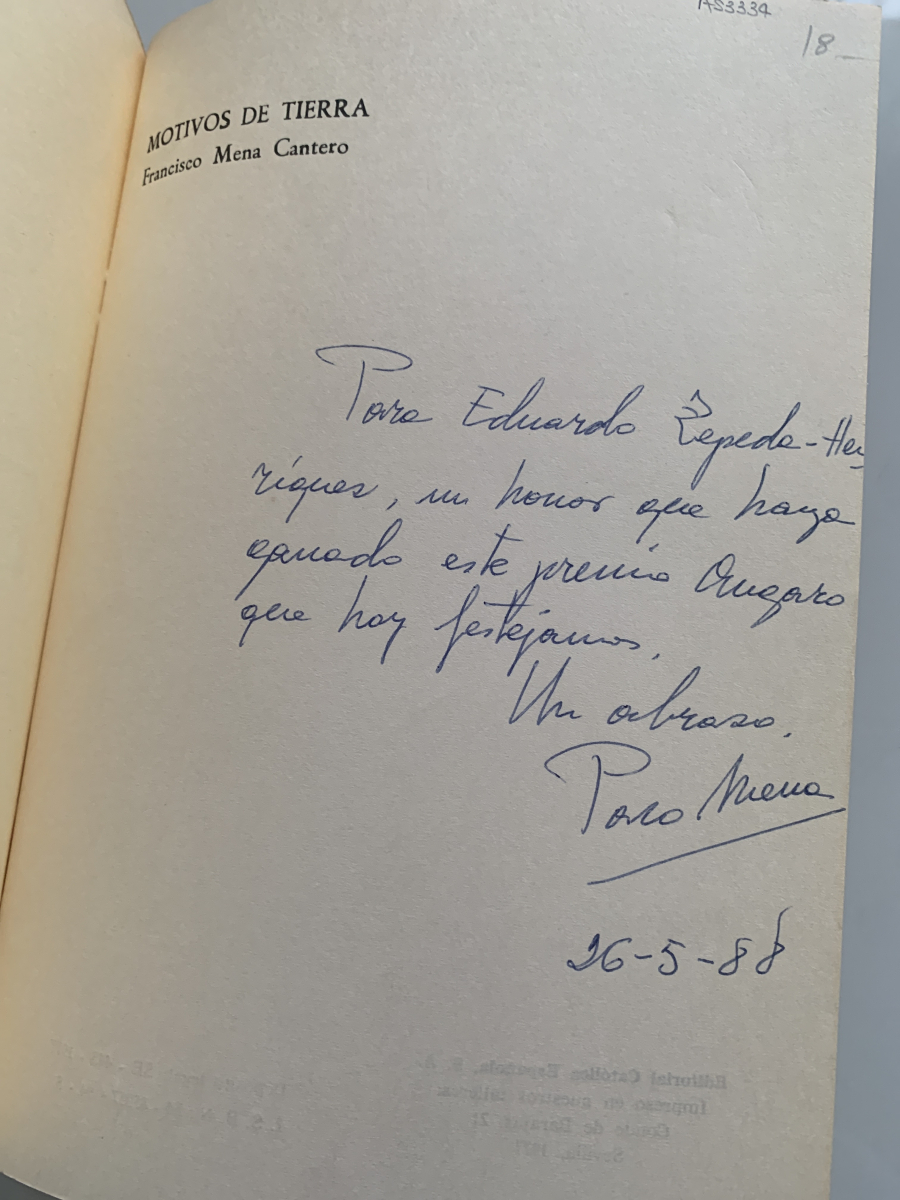 AS3334
18
MOTIVOS DE TIERRA
Francisco Mena Cantero
Para Eduardo Zepeda-Hen
ríquez, un honor que haya
ganado este premio Angaro
que hoy festejamos.
Un abrazo.
Paco Mena
26-5-88
Editorial Católica Española, S. A.
Impreso en nuestros talleres:
Conde de Barajas, 21
Sevilla,